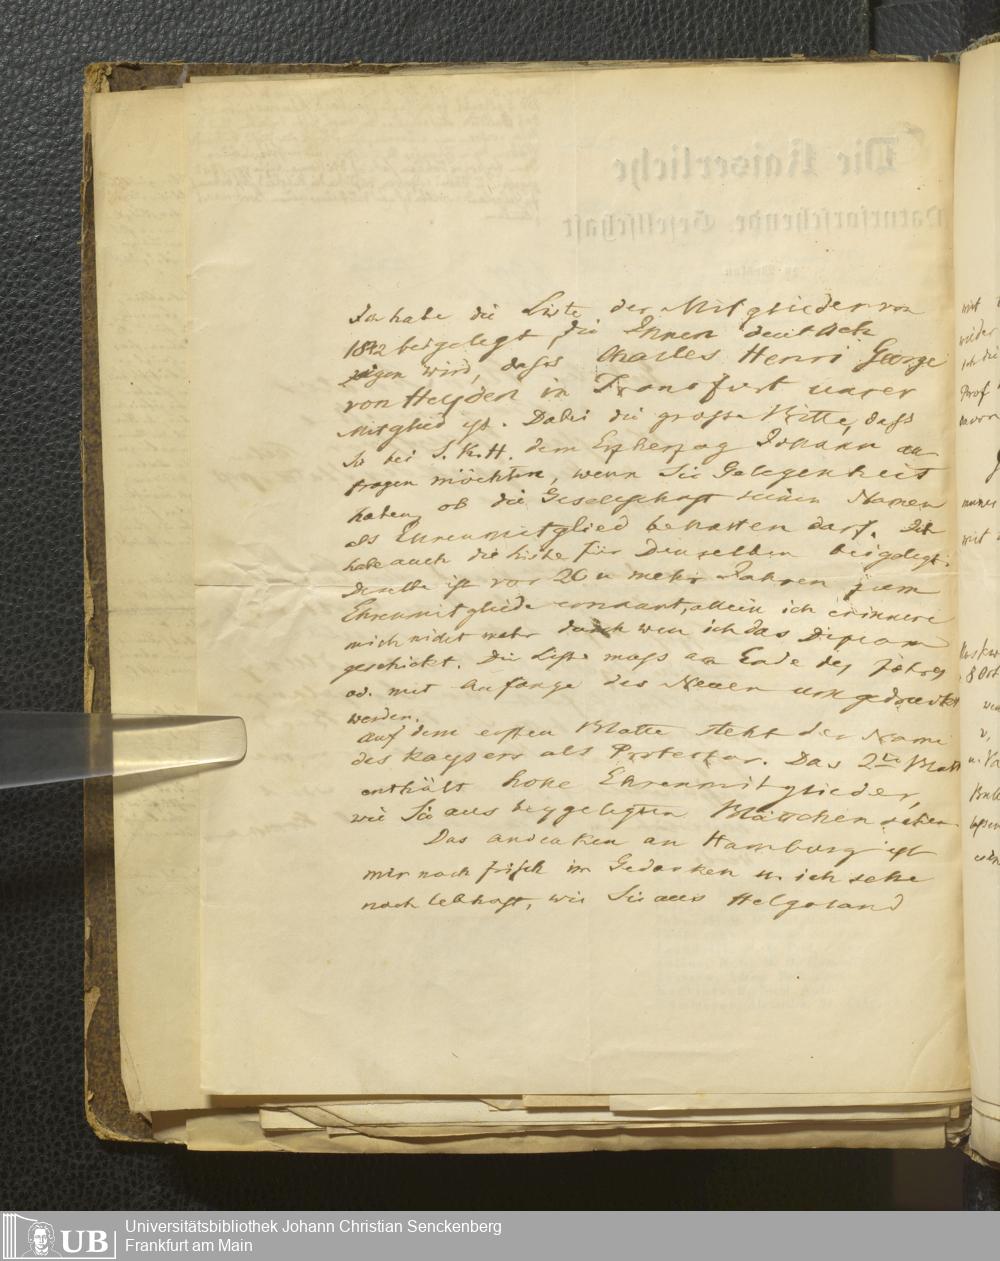 Ich habe die Liste der Mitglieder von
1842 beigelegt, die Ihnen deutlich
zeigen wird, dass Charles Henri George
von Heyden in Francfurt unser
Mitglied ist. Dabei die grosse Bitte, dass
Sie bei S. K. H. dem Erzherzog Johann an
fragen möchten, wenn Sie Gelegenheit
haben, ob die Gesellschaft seinen Namen
als Ehrenmitglied behalten darf. Ich
habe auch die Liste für Denselben beigelegt.
Derselbe ist vor 20 u mehr Jahren zum
Ehrenmitgliede ernannt, allein ich erinnere
mich nicht mehr durch wen ich das Diplom
geschickt. Die Liste muss am Ende des Jahres
od. mit Anfange des Neuen umgedruckt
werden.
Auf dem ersten Blatte steht der Name
des Kaysers als Protector. Das 2te Blatt
enthält hohe Ehrenmitglieder,
wie Sie aus beygelegten Blättchen sehen
Das Andenken an Hamburg ist
mir noch frisch im Gedanken u. ich sehe
noch lebhaft, wie Sie aus Helgoland
Die Kaiserliche
Naturforschende Gesellschaft
zu Moskau
UB
Universitätsbibliothek Johann Christian Senckenberg
Frankfurt am Main